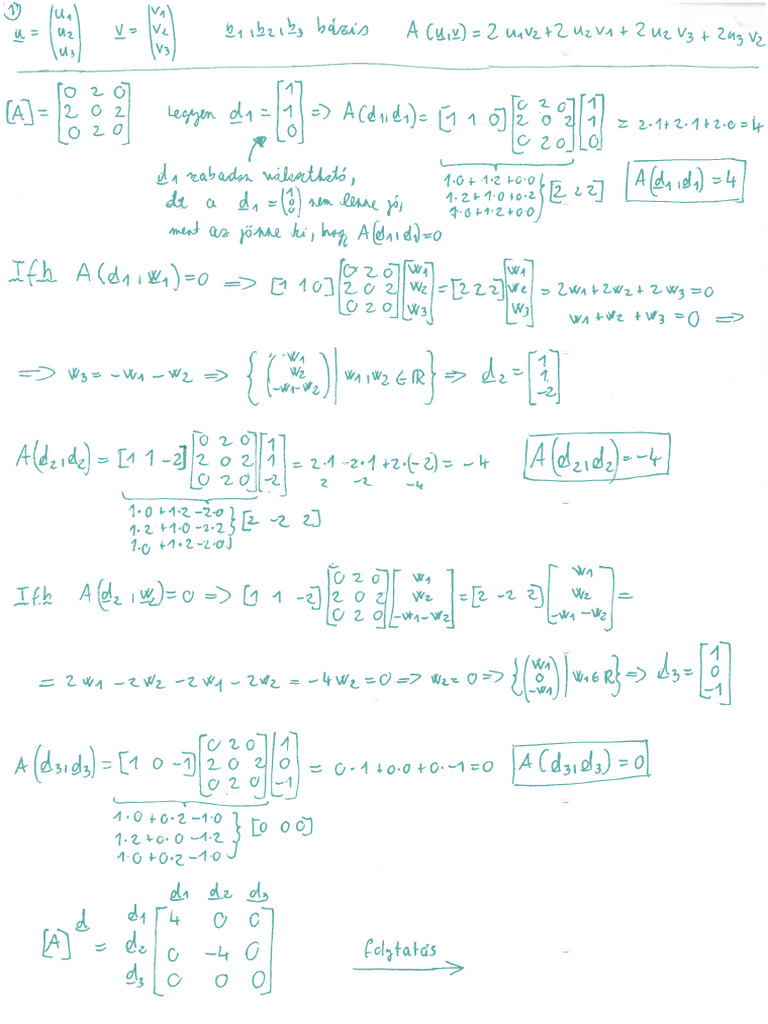 1,
u = (u1 u2 u3) v = (v1 v2 v3) b1, b2, b3 bázis A(u,v) = 2u1v2 + 2u2v1 + 2u2v3 + 2u3v2
[A] = [0 2 0; 2 0 2; 0 2 0] Legyen d1 = [1 1 0] => A(d1,d1) = [1 1 0] [0 2 0; 2 0 2; 0 2 0] [1 1 0] = 2·1+2·1+2·0=4
d1 szabadon választható,
de a d1 = (1 0 0) nem lenne jó,
mert az jönne ki, hogy A(d1,d1)=0
1·0+1·2+0·0
1·2+1·0+0·2
1·0+1·2+0·0
[2 2 2]
A(d1,d1) = 4
I.f.h A(d1,w1)=0 => [1 1 0] [0 2 0; 2 0 2; 0 2 0] [w1 w2 w3] = [2 2 2] [w1 w2 w3] = 2w1+2w2+2w3=0
w1+w2+w3=0 =>
=> w3 = -w1 -w2 => {(w1 w2 -w1-w2) | w1,w2 ∈ R} => d2 = [1 1 -2]
A(d2,d2) = [1 1 -2] [0 2 0; 2 0 2; 0 2 0] [1 1 -2] = 2·1 -2·1+2·(-2) = -4
2 -2 -4
A(d2,d2) = -4
1·0+1·2-2·0
1·2+1·0-2·2
1·0+1·2-2·0
[2 -2 2]
I.f.h A(d2,w2)=0 => [1 1 -2] [0 2 0; 2 0 2; 0 2 0] [w1 w2 -w1-w2] = [2 -2 2] [w1 w2 -w1-w2] =
= 2w1 -2w2 -2w1 -2w2 = -4w2 = 0 => w2 = 0 => {(w1 0 -w1) | w1∈R} => d3 = [1 0 -1]
A(d3,d3) = [1 0 -1] [0 2 0; 2 0 2; 0 2 0] [1 0 -1] = 0·1+0·0+0·-1=0
A(d3,d3) = 0
1·0+0·2-1·0
1·2+0·0-1·2
1·0+0·2-1·0
[0 0 0]
d1 d2 d3
[A]^d = d1 [4 0 0
d2 0 -4 0
d3 0 0 0]
folytatás